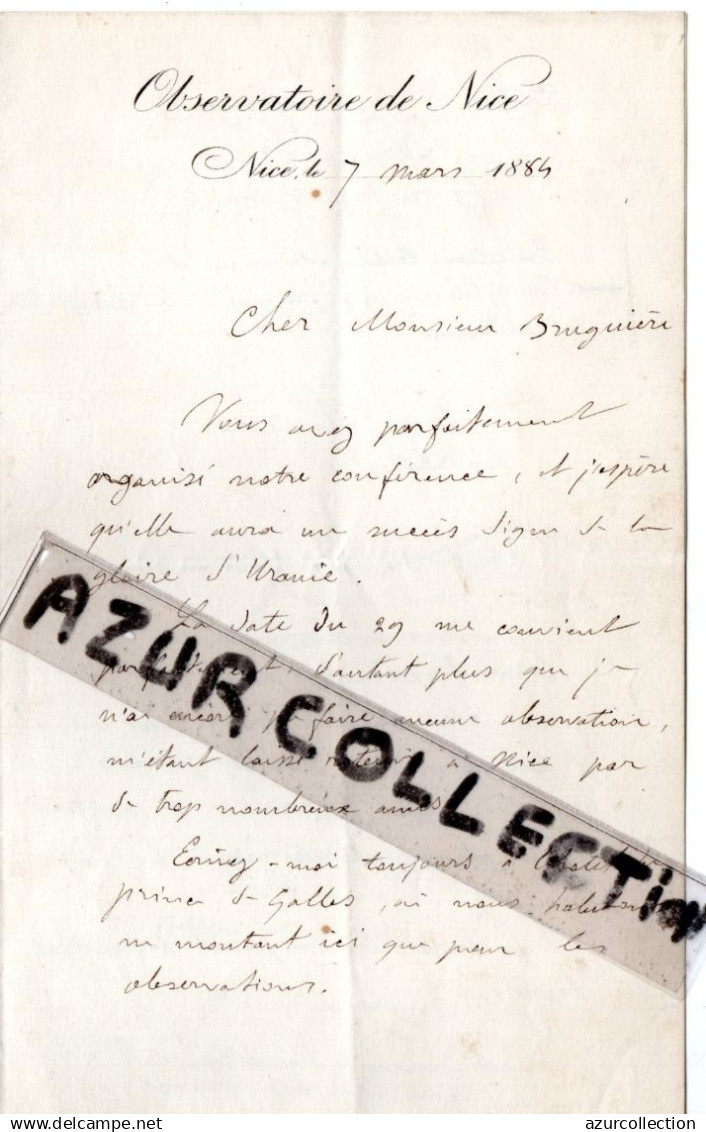 Observatoire de Nice
Nice, le 7 mars 1884
Cher Monsieur Bruguière
Vous avez parfaitement
organisé notre conférence, et j'espère
qu'elle aura un succès digne de la
gloire d'Uranie.
La date du 29 me convient
parfaitement, d'autant plus que je
n'ai encore pu faire aucune observation,
m'étant laissé retenir à Nice par
de trop nombreux amis.
Ecrivez-moi toujours à l'hotel du
prince de Galles, où nous habitons
ne montant ici que pour les
observations.
AZUR COLLECTION
delcampe.net
azurcollection